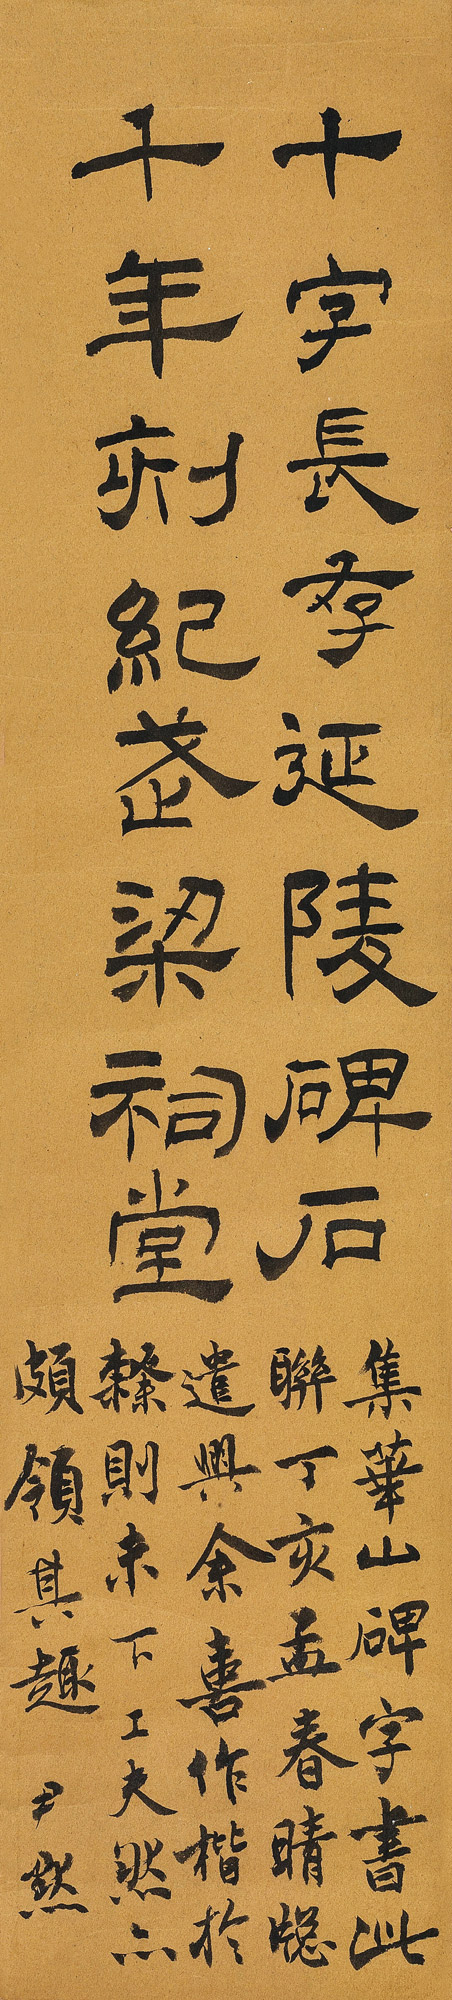 十字長存延陵碑石
千年刻紀武梁祠堂
集華山碑字書此
聯丁亥孟春晴窗
遣興余喜作楷於
隸則未下工夫然亦
頗領其趣 尹默